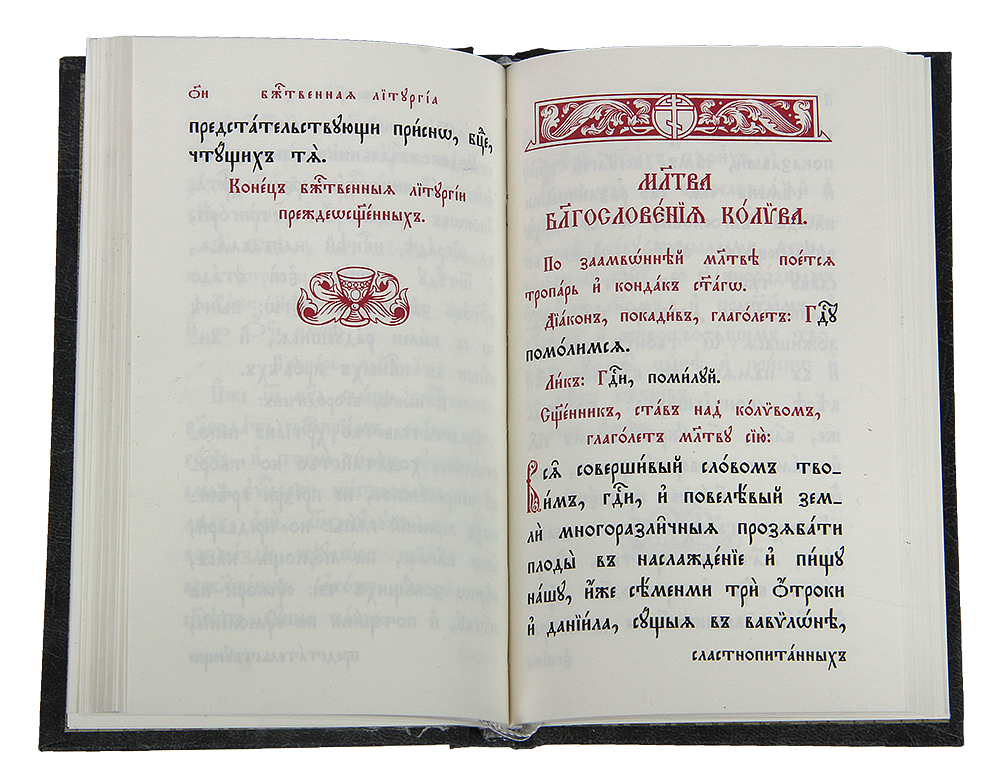 ѻ҃и бж҃твеннаѧ лїтꙋргі́а
предста́тельствꙋющи при́снѡ, бц҃е,
чтꙋ́щихъ тѧ̀.
Коне́цъ бж҃твенныѧ лїтꙋргі́и
преждеѡсщ҃е́нныхъ.
МЛ҃ТВА
БЛ҃ГОСЛОВЕ́НЇѦ КО́ЛѴВА.
По заамвѡ́ннѣй мл҃твѣ пое́тсѧ
тропа́рь и҆ конда́къ ст҃а́гѡ.
Дїа́конъ, покади́въ, глаго́летъ: Гдⷭ҇ꙋ
помо́лимсѧ.
Ли́къ: Гдⷭ҇и, поми́лꙋй.
Сщ҃е́нникъ, ста́въ над̾ ко́лѵвомъ,
глаго́летъ мл҃твꙋ сїю̀:
Всѧ̑ соверши́вый сло́вомъ тво-
и́мъ, гдⷭ҇и, и҆ повелѣ́вый зем-
лѝ многоразли́чныѧ прозѧба́ти
плоды̀ въ наслажде́нїе и҆ пи́щꙋ
на́шꙋ, и҆́же сѣ́менми трѝ ѻ҆́троки
и҆ данїи́ла, сꙋ́щыѧ въ вавѷлѡ́нѣ,
сластнопита́нныхъ